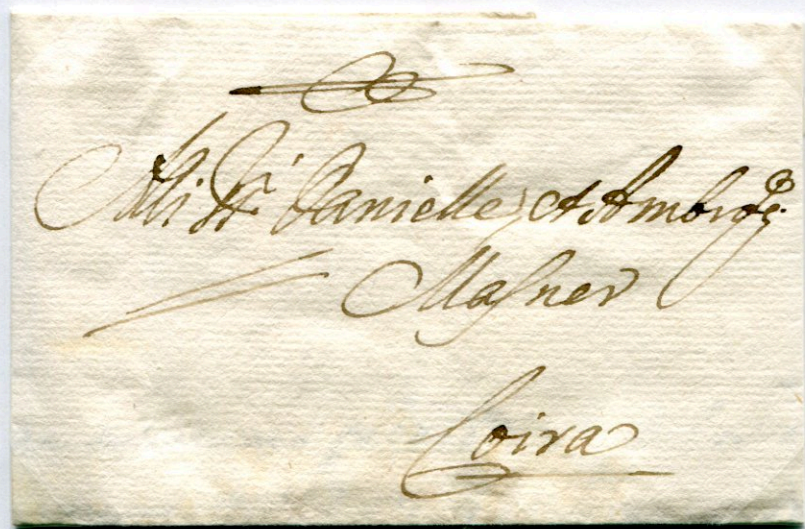 Alli Sri Danielle, et Ambrog.
Masner
Coira